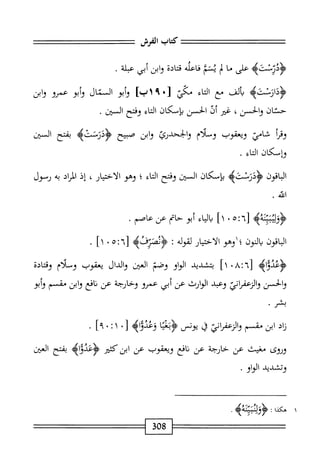 كتاب الفرش
﴿دُرِّسْتَ﴾ على ما لم يُسَمَّ فاعلُه قتادة وابن أبي عبلة .
﴿دَارَسْتَ﴾ بألف مع التاء مكّيّ [١٩٠ب] وأبو السمّال وأبو عمرو وابن
حسّان والحسن ، غير أنّ الحسن بإسكان التاء وفتح السين .
وقرأ شاميّ ويعقوب وسلّام والجحدريّ وابن صبيح ﴿دَرَسَتْ﴾ بفتح السين
وإسكان التاء .
الباقون ﴿دَرَسْتَ﴾ بإسكان السين وفتح التاء ؛ وهو الاختيار ، إذ المراد به رسول
الله .
﴿وَلِيُبَيِّنَهُ﴾ [١٠٥:٦] بالياء أبو حاتم عن عاصم .
الباقون بالنون ؛١ وهو الاختيار لقوله : ﴿نُصَرِّفُ﴾ [١٠٥:٦] .
﴿عُدُوًّا﴾ [١٠٨:٦] بتشديد الواو وضمّ العين والدال يعقوب وسلّام وقتادة
والحسن والزعفرانيّ وعبد الوارث عن أبي عمرو وخارجة عن نافع وابن مقسم وأبو
بشر .
زاد ابن مقسم والزعفرانيّ في يونس ﴿بَغْيًا وَعُدُوًّا﴾ [٩٠:١٠] .
وروى مغيث عن خارجة عن نافع ويعقوب عن ابن كثير ﴿عَدُوًّا﴾ بفتح العين
وتشديد الواو .
١ هكذا : ﴿وَلِنُبَيِّنَهُ﴾ .
308